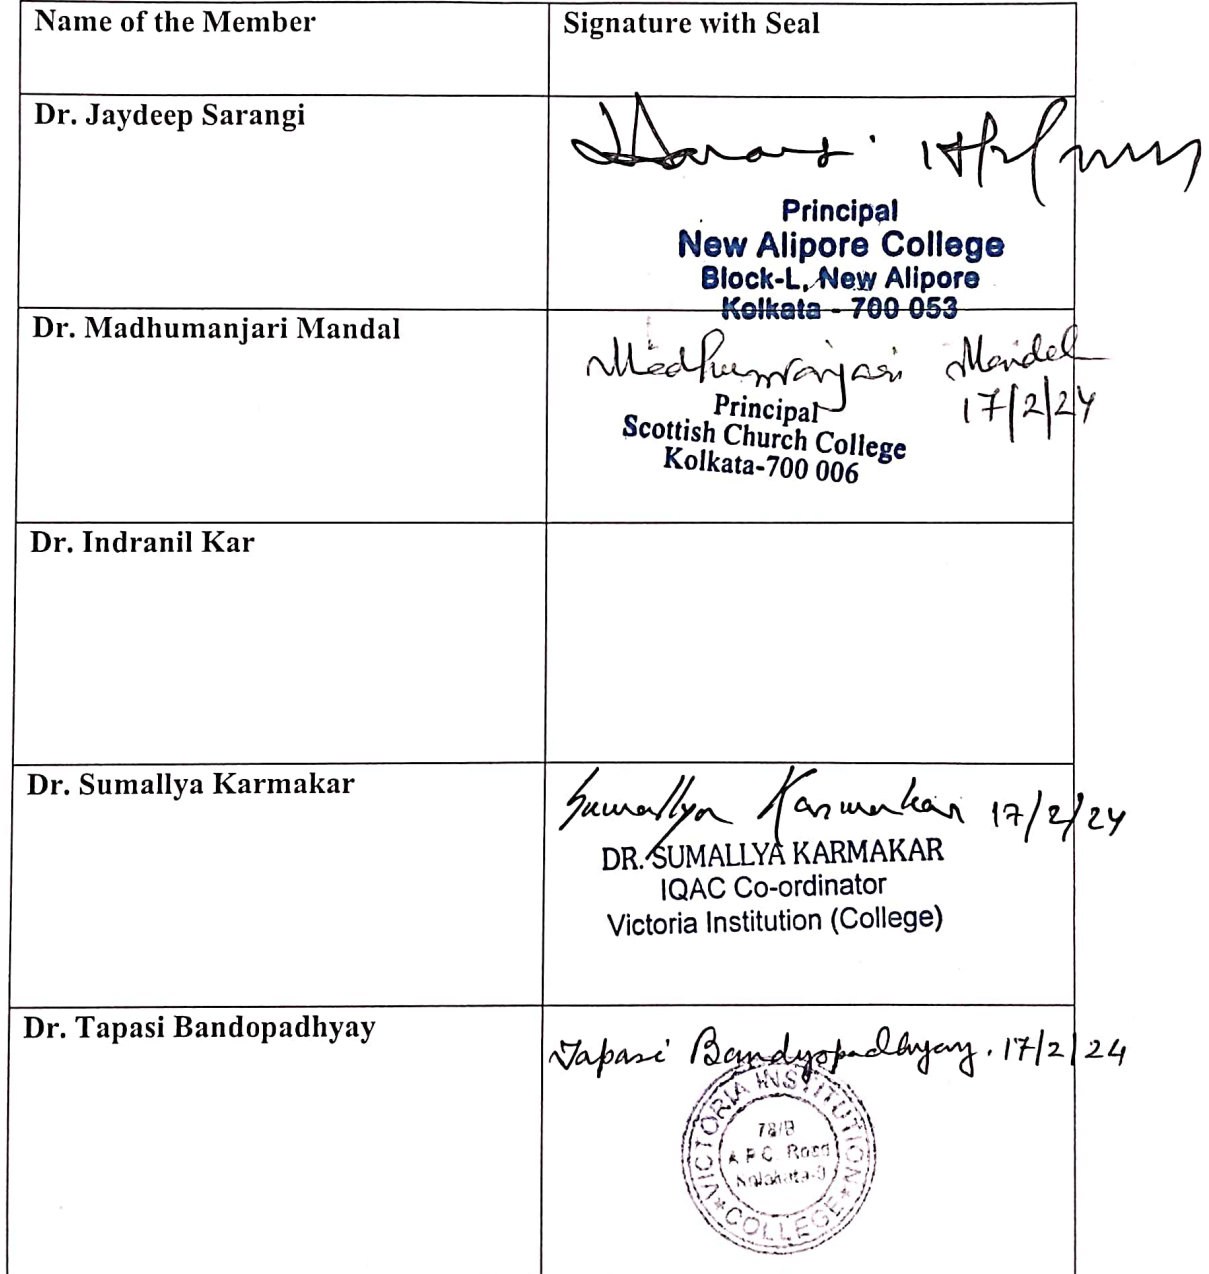 Name of the Member
Signature with Seal
Dr. Jaydeep Sarangi
Principal
New Alipore College
Block-L, New Alipore
Kolkata - 700 053
Dr. Madhumanjari Mandal
Madhumanjari Mandal
17/2/24
Principal
Scottish Church College
Kolkata-700 006
Dr. Indranil Kar
Dr. Sumallya Karmakar
Sumallya Karmakar 17/2/24
DR. SUMALLYA KARMAKAR
IQAC Co-ordinator
Victoria Institution (College)
Dr. Tapasi Bandopadhyay
Tapasi Bandyopadhyay. 17/2/24
VICTORIA INSTITUTION
78/B
A P C Road
Kolakata-9
COLLEGE